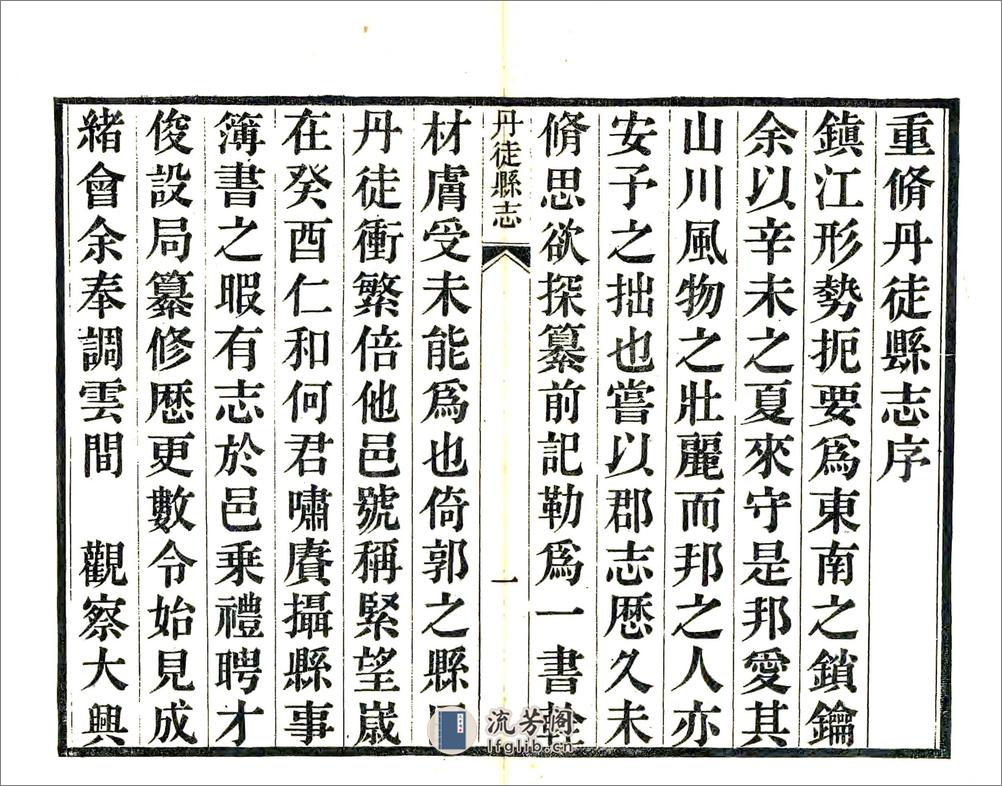 重脩丹徒縣志序
鎮江形勢扼要爲東南之鎖鑰
余以辛未之夏來守是邦愛其
山川風物之壯麗而邦之人亦
安予之拙也嘗以郡志歷久未
脩思欲探纂前記勒爲一書
丹徒縣志
一
材膚受未能爲也倚郭之縣
丹徒衝繁倍他邑號稱緊望嵗
在癸酉仁和何君嘯賡攝縣事
簿書之暇有志於邑乗禮聘才
俊設局纂修歷更數令始見成
緒會余奉調雲間 觀察大興
流芳阁
lfglib.cn